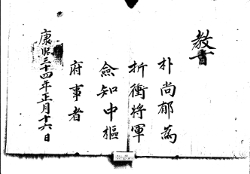 教旨
朴尚郁為
折衝將軍
僉知中樞
府事者
康熙三十四年正月十六日